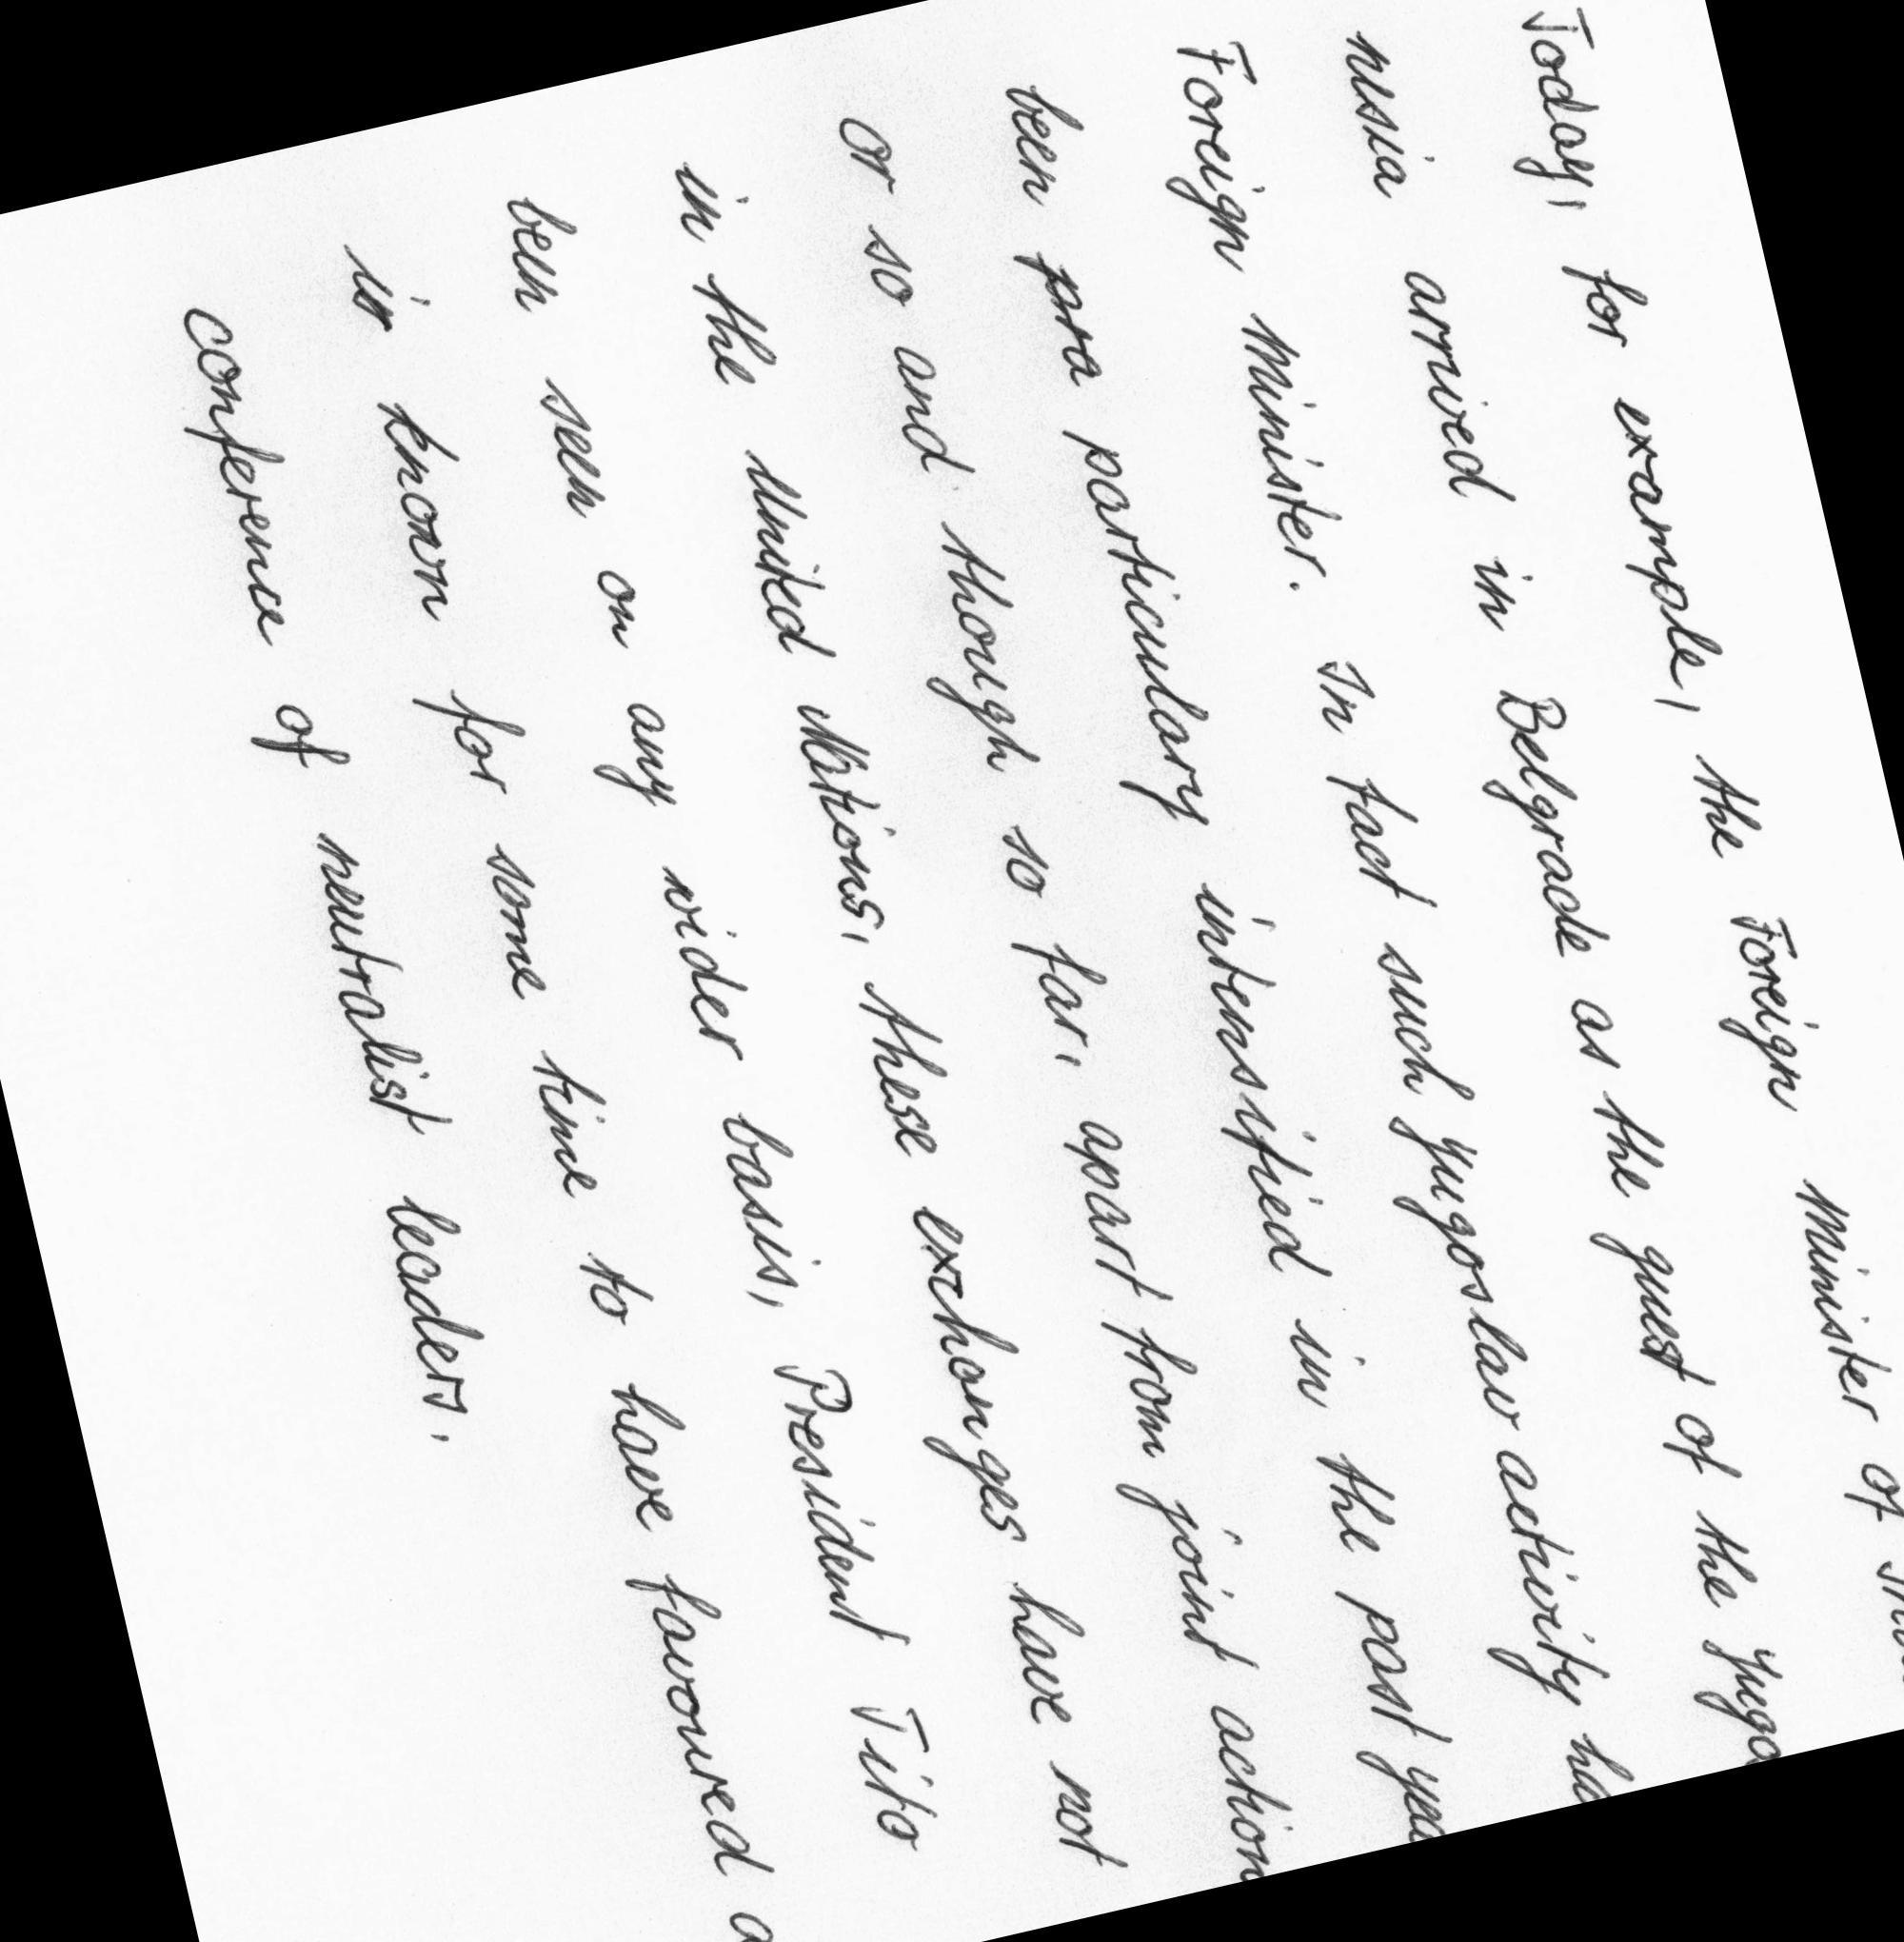 Today, for example, the Foreign Minister of
nesia arrived in Belgrade as the guest of the Yugo
Foreign Minister. In fact such Yugoslav activity ha
been pra particulary intensified in the past yea
or so and though so far, apart from joint action
in the United Nations, these exchanges have not
been seen on any wider basis, President Tito
is known for some time to have favoured a
conference of neutralist leaders.